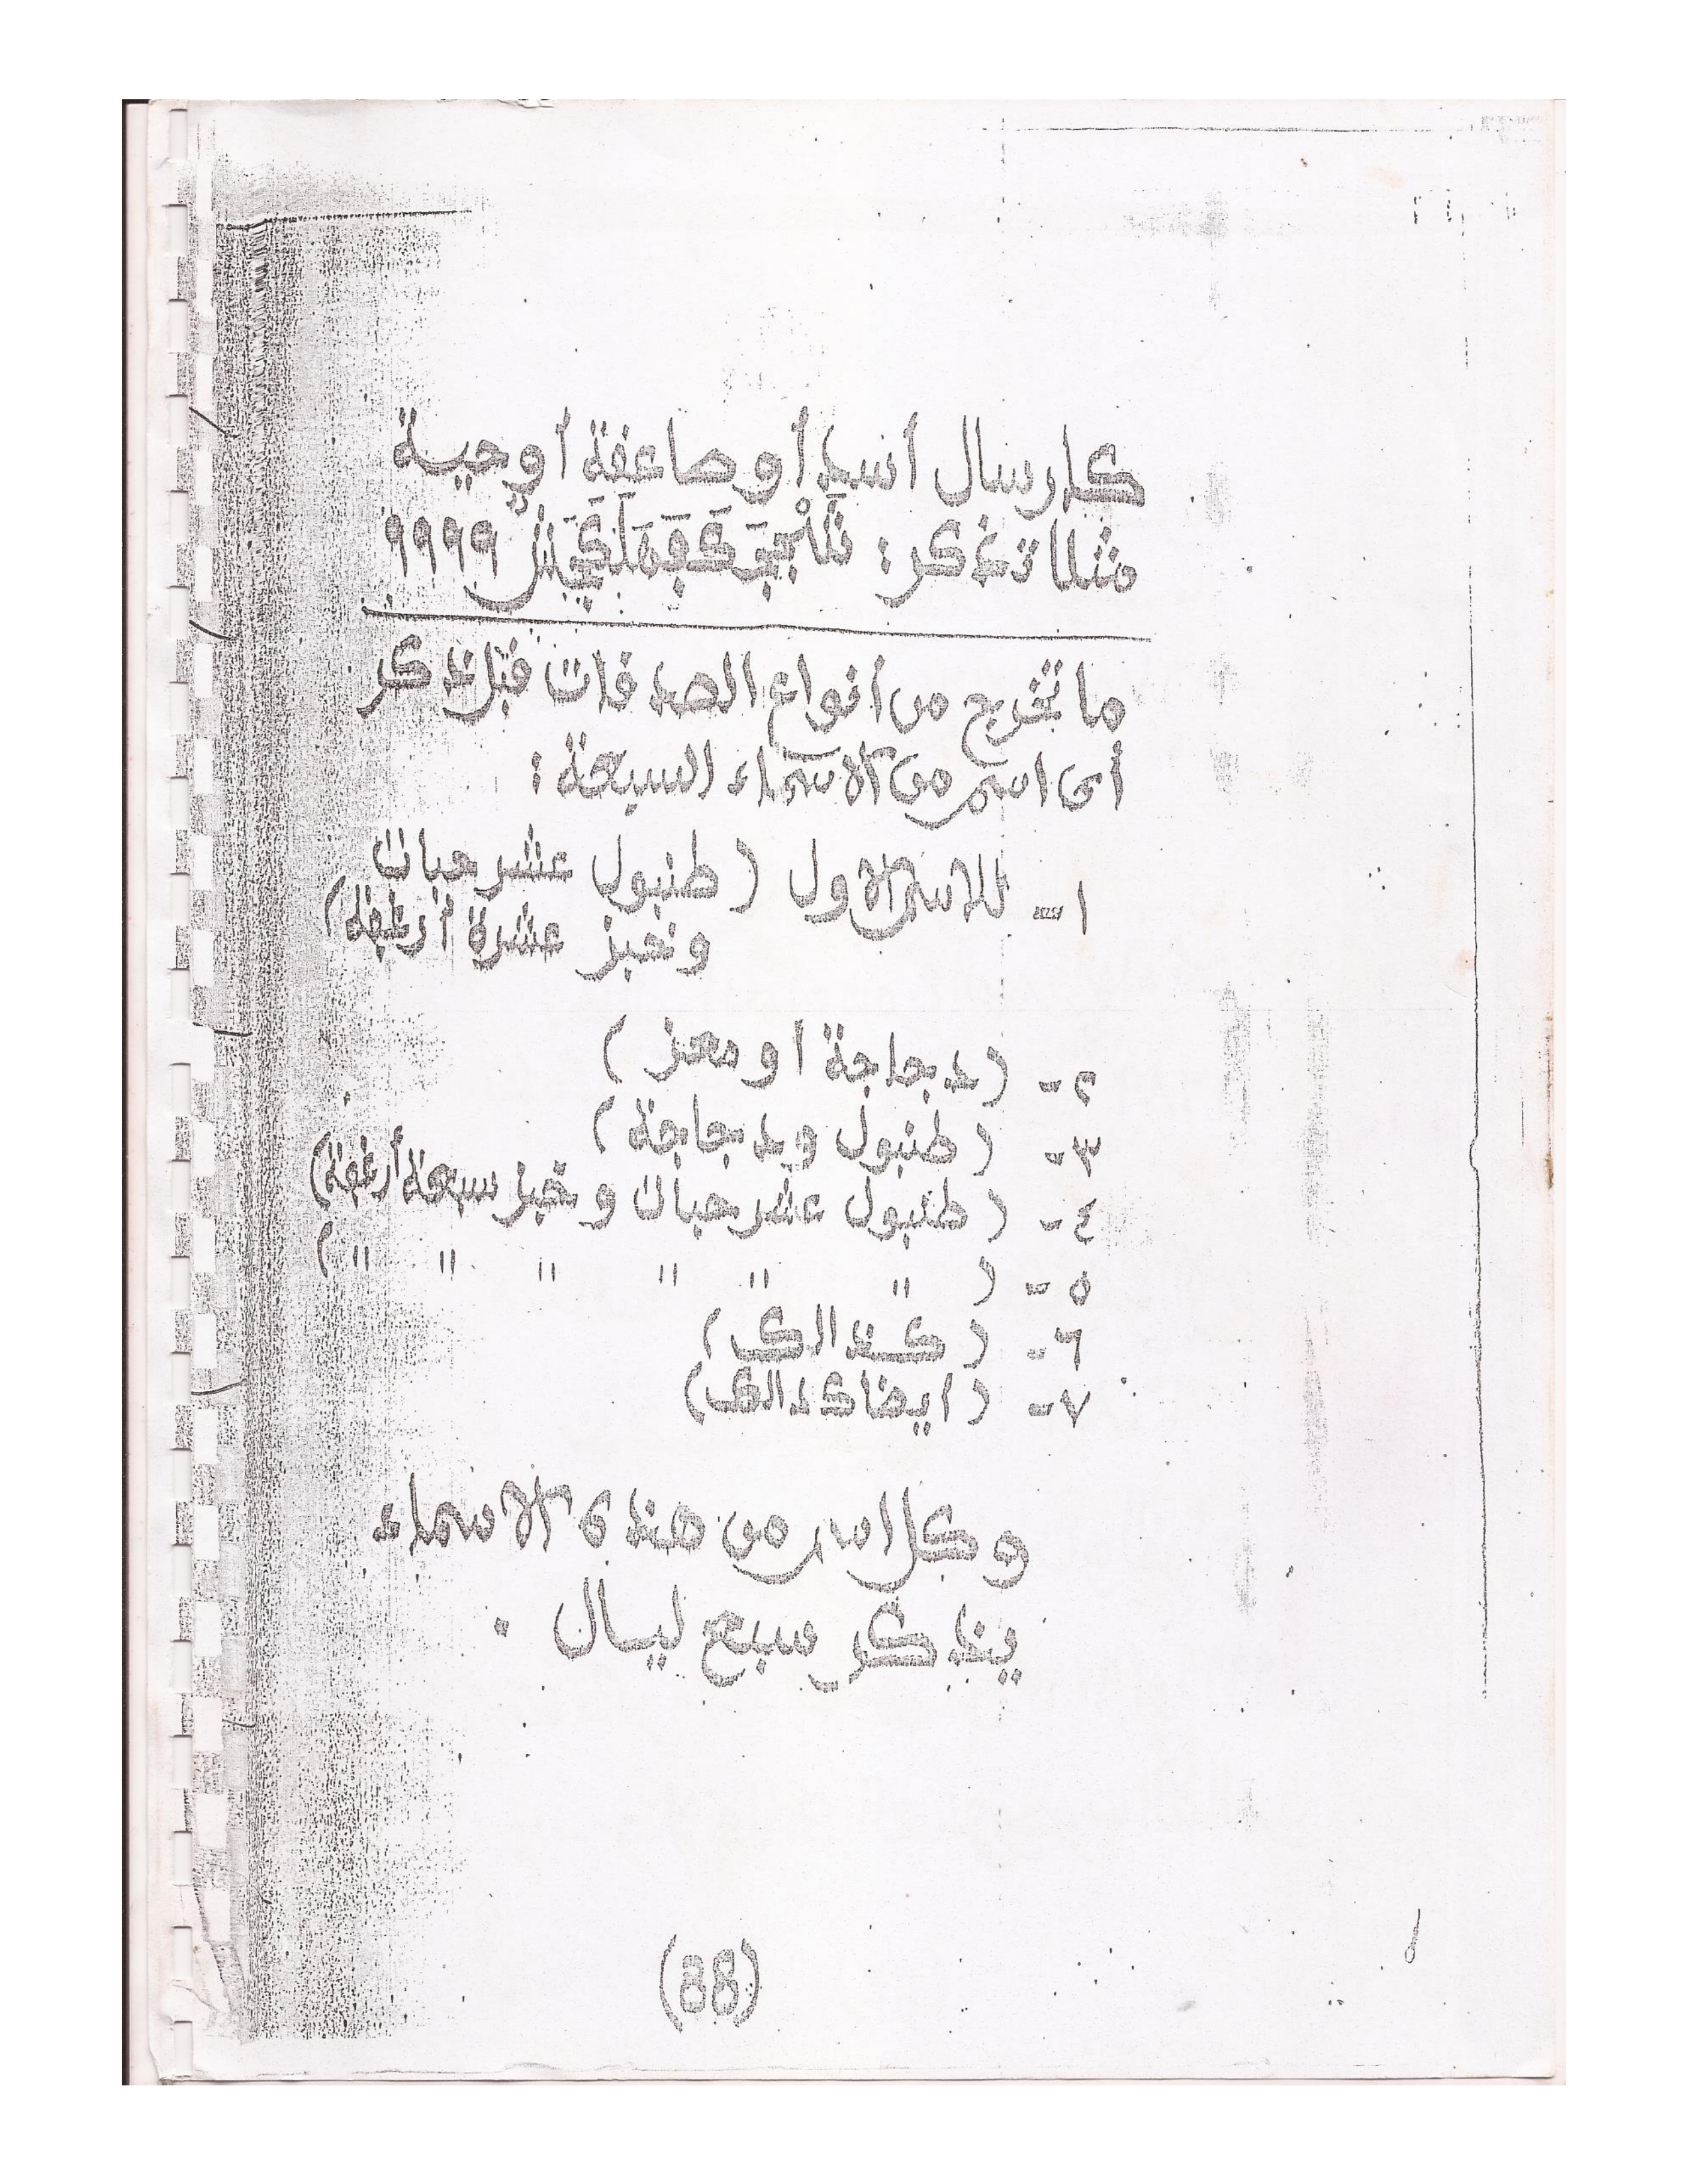 كارسال أسد أو صاعقة أو حية
مثلا تذكر : ٩٩٩٩
ما تخرج من انواع الصدقات قبل تذكر
أى اسم من الاسماء السبعة :
١- للاسم الاول ( طنبول عشر حبات
وخبز عشرة أرغفة )
٢- ( دجاجة او معز )
٣- ( طنبول ودجاجة )
٤- ( طنبول عشر حبات وخبز سبعة أرغفة )
٥- ( " " " " " " )
٦- ( كذالك )
٧- ( ايضا كذالك )
وكل اسم من هذه الاسماء
يذكر سبع ليال .
(88)